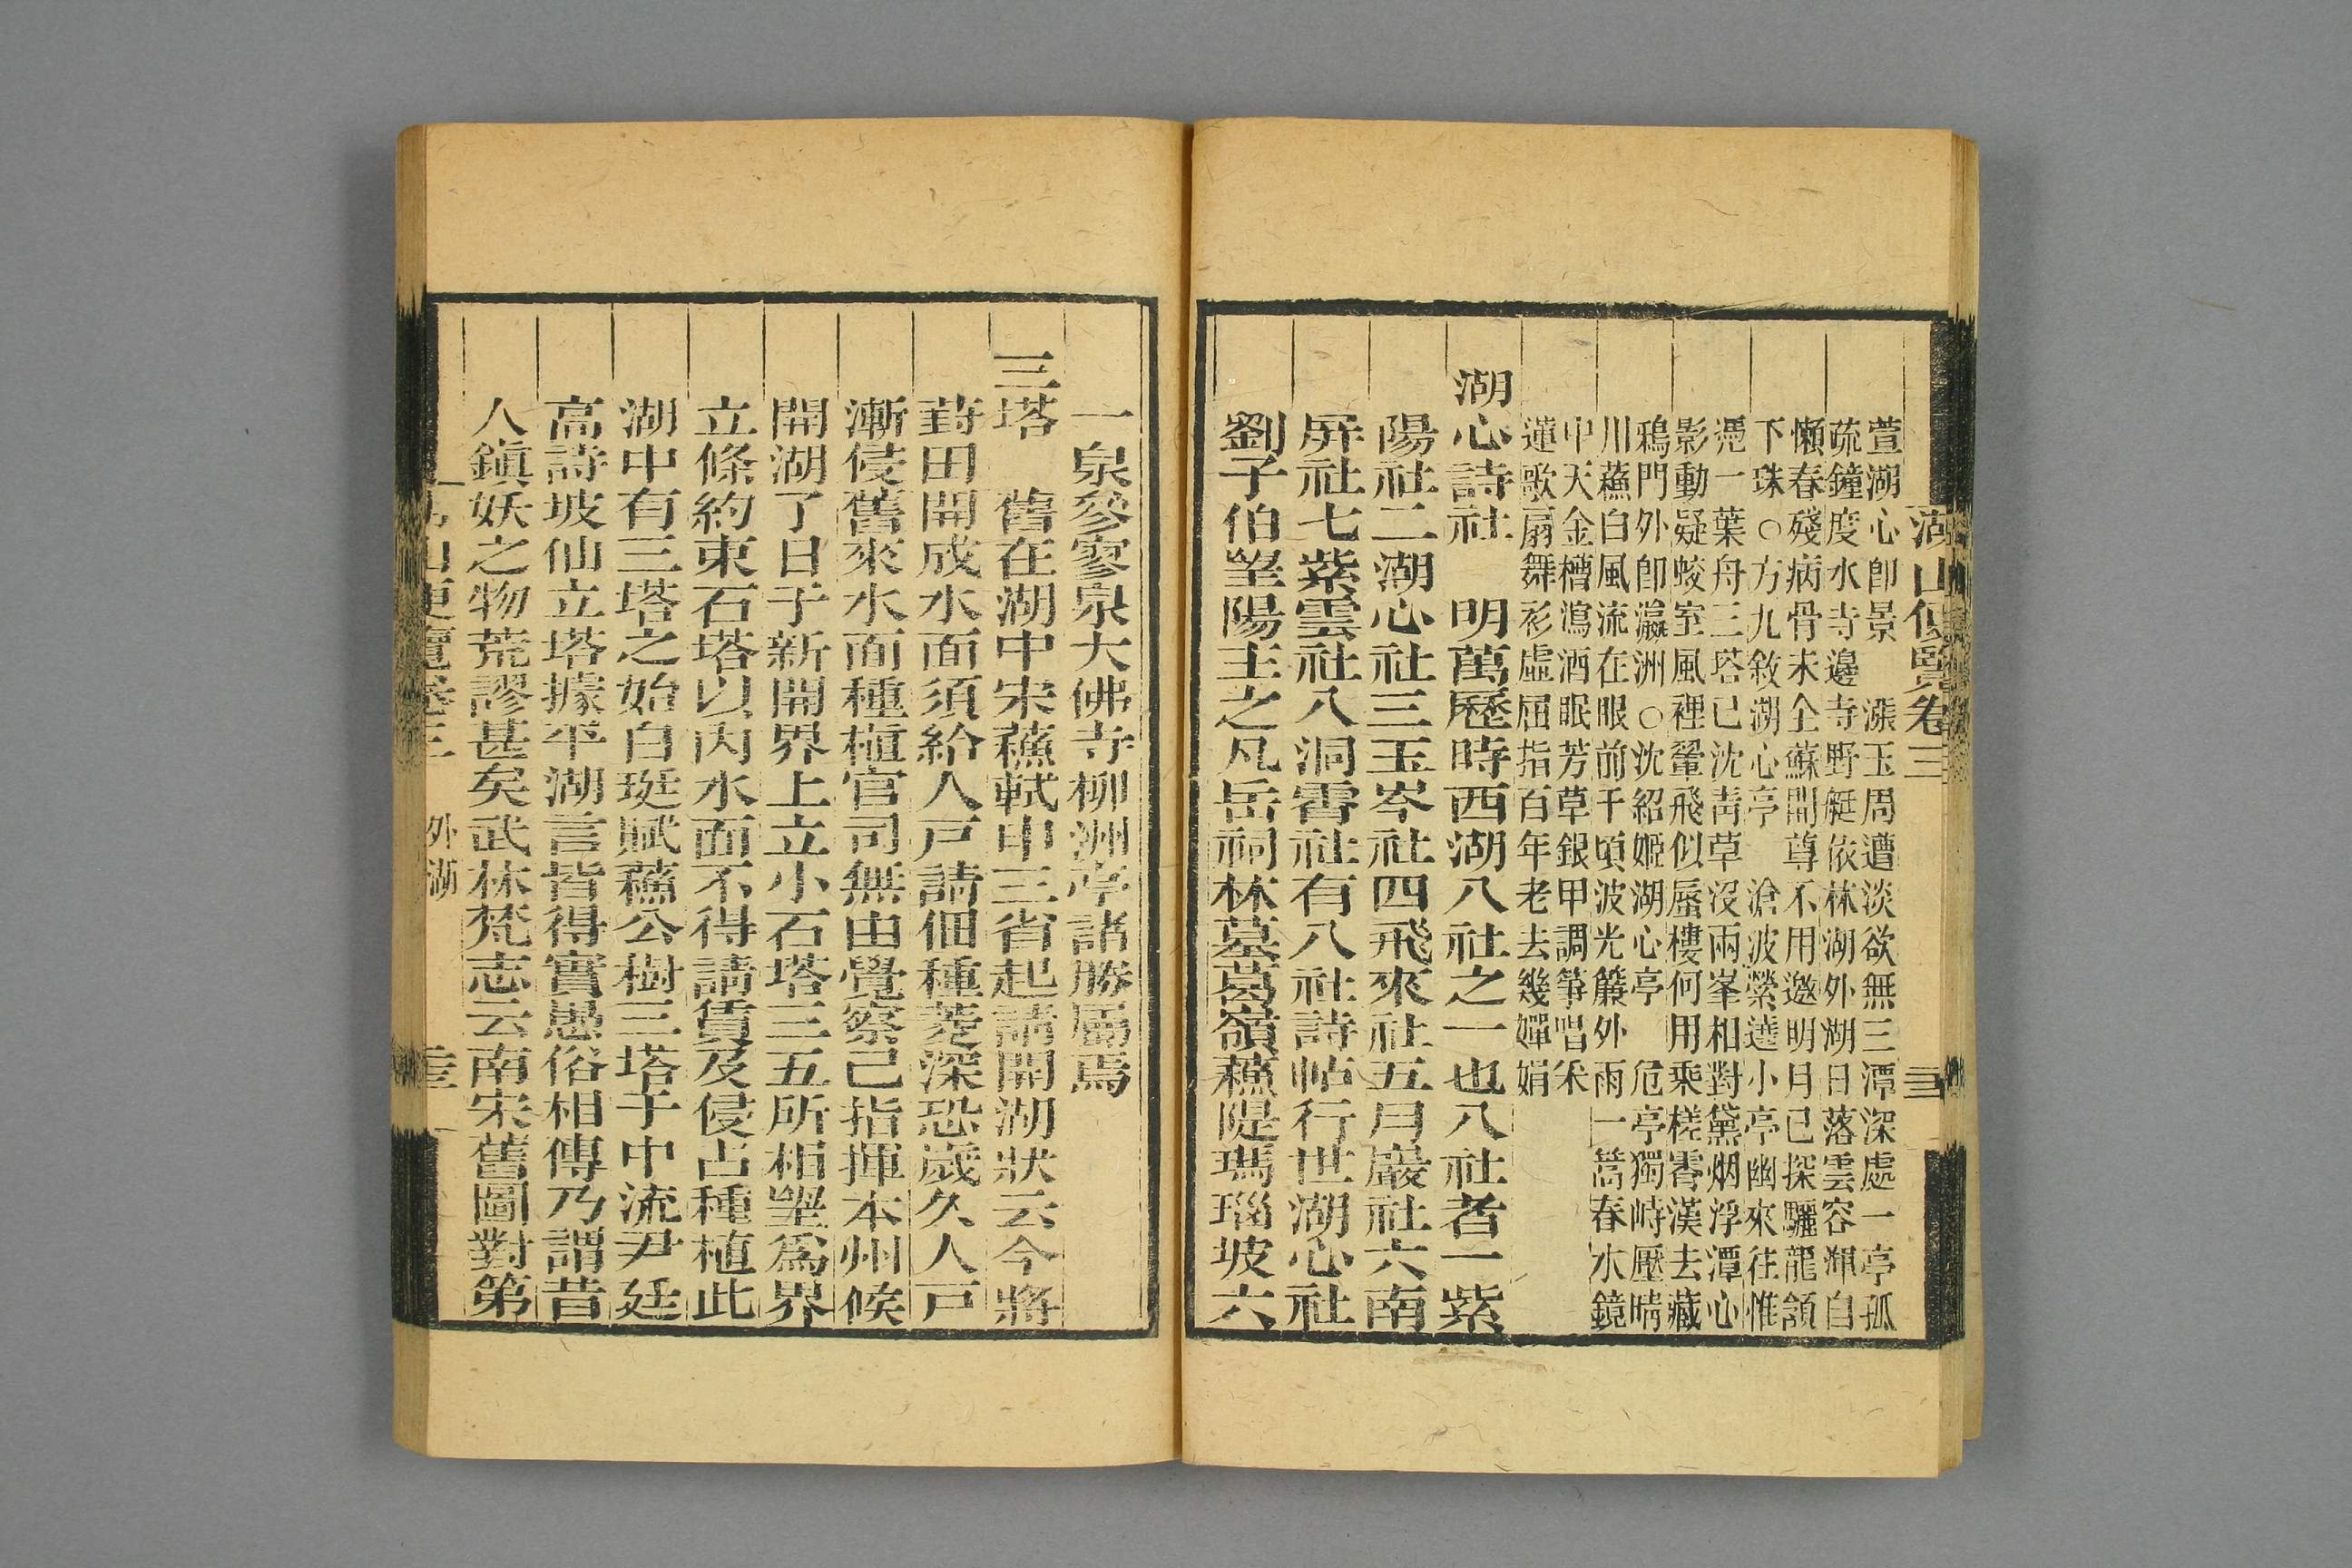 湖山便覽卷三
萱湖心卽景　漲玉周遭淡欲無三潭深處一亭孤
疏鐘度水寺邊寺野艇依林湖外湖日落雲容渾自
懶春殘病骨未全蘇開尊不用邀明月已探驪龍頷
下珠○方九敘湖心亭　滄波縈遶小亭幽來往惟
憑一葉舟三塔已沈靑草沒兩峯相對黛烟浮潭心
影動疑蛟室風裡翬飛似蜃樓何用乘槎霄漢去藏
鴉門外卽瀛洲○沈紹姬湖心亭　危亭獨峙壓晴
川蘸白風流在眼前千頃波光簾外雨一篙春水鏡
中天金槽瀉酒眠芳草銀甲調箏唱采
蓮歌扇舞衫虛屈指百年老去幾嬋娟
湖心詩社　明萬歷時西湖八社之一也八社者一紫
陽社二湖心社三玉岑社四飛來社五月巖社六南
屏社七紫雲社八洞霄社有八社詩帖行世湖心社
劉子伯望陽主之凡岳祠林墓葛嶺蘇隄瑪瑙坡六
一泉參寥泉大佛寺柳洲亭諸勝屬焉
三塔　舊在湖中宋蘇軾申三省起請開湖狀云今將
葑田開成水面須給人戸請佃種菱深恐歲久人戸
漸侵舊來水面種植官司無由覺察已指揮本州候
開湖了日于新開界上立小石塔三五所相望爲界
立條約束石塔以內水面不得請賃及侵占種植此
湖中有三塔之始白珽賦蘇公樹三塔于中流尹廷
高詩坡仙立塔據平湖言皆得實愚俗相傳乃謂昔
人鎭妖之物荒謬甚矣武林梵志云南宋舊圖對第
湖山便覽卷三　外湖